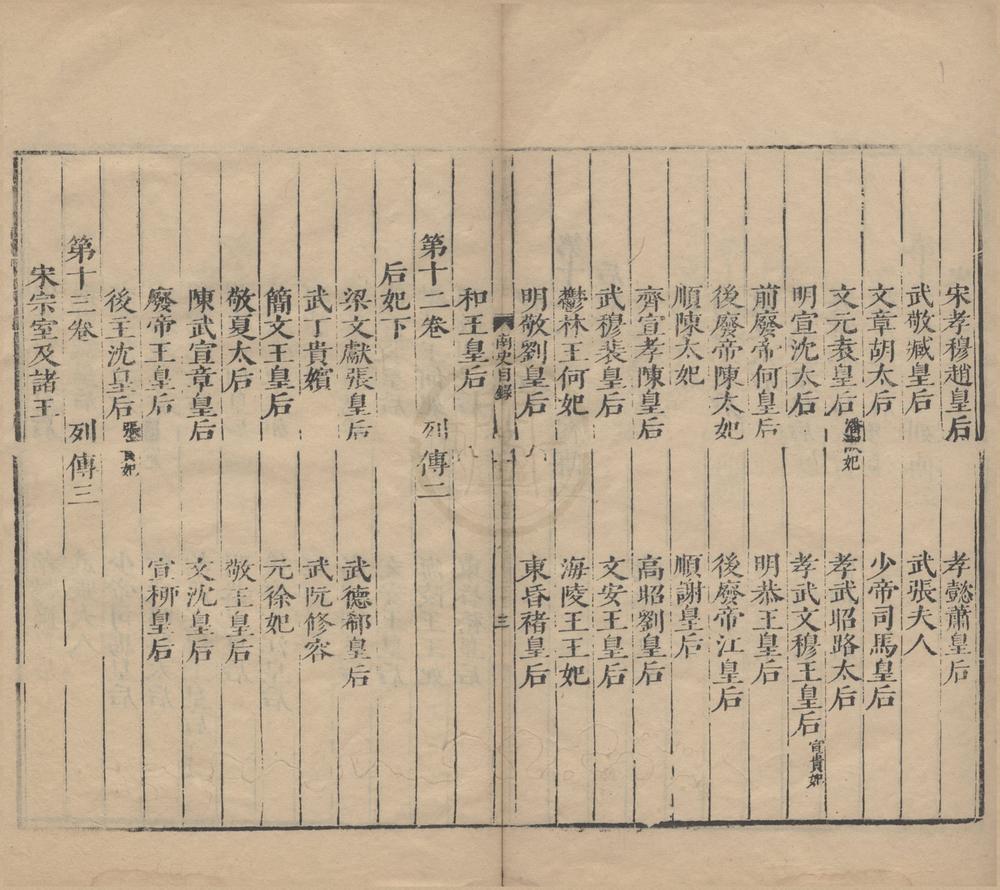 宋孝穆趙皇后　孝懿蕭皇后
武敬臧皇后　武張夫人
文章胡太后　少帝司馬皇后
文元袁皇后　潘淑妃　孝武昭路太后
明宣沈太后　孝武文穆王皇后　宣貴妃
前廢帝何皇后　明恭王皇后
後廢帝陳太妃　後廢帝江皇后
順陳太妃　順謝皇后
齊宣孝陳皇后　高昭劉皇后
武穆裴皇后　文安王皇后
鬱林王何妃　海陵王王妃
明敬劉皇后　東昏褚皇后
南史目錄　三
和王皇后
第十二卷　列傳二
后妃下
梁文獻張皇后　武德郗皇后
武丁貴嬪　武阮修容
簡文王皇后　元徐妃
敬夏太后　敬王皇后
陳武宣章皇后　文沈皇后
廢帝王皇后　宣柳皇后
後主沈皇后　張貴妃
第十三卷　列傳三
宋宗室及諸王